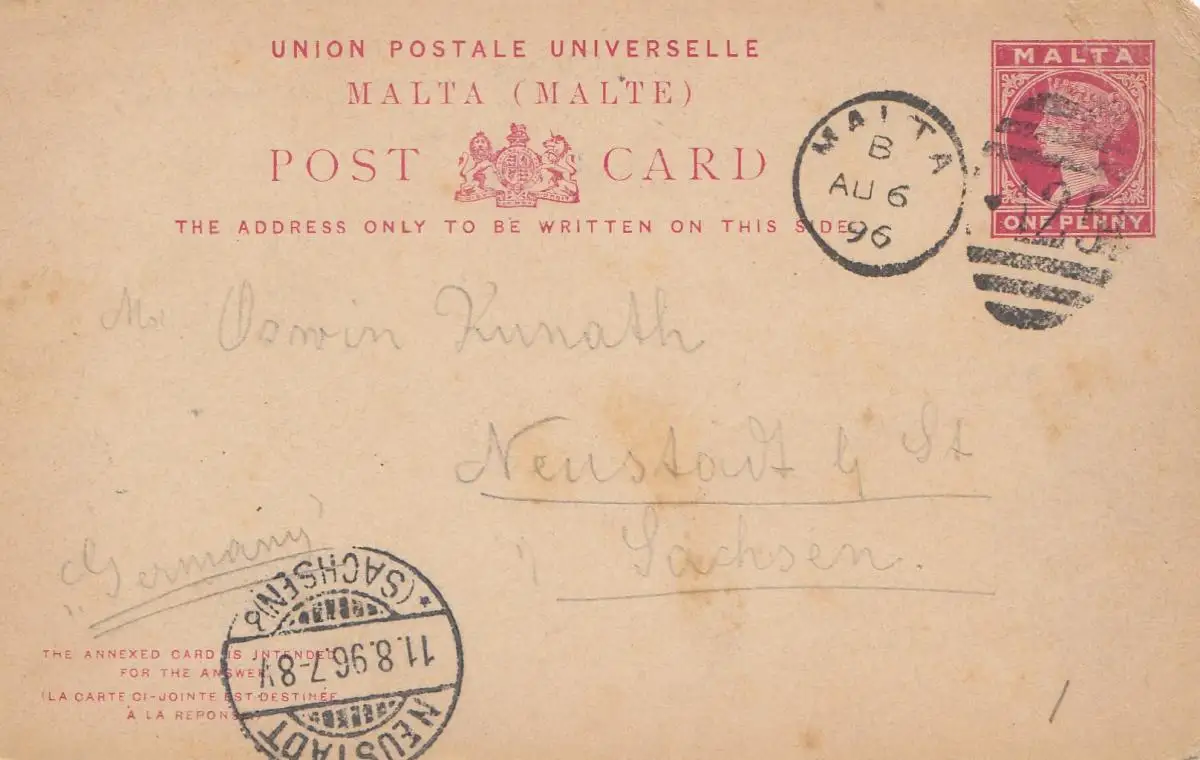 UNION POSTALE UNIVERSELLE
MALTA (MALTE)
POST CARD
THE ADDRESS ONLY TO BE WRITTEN ON THIS SIDE
MALTA
ONE PENNY
MALTA
B
AU 6
96
A25
Oswin Kunath
Neustadt b/ St
Sachsen.
„Germany"
THE ANNEXED CARD IS INTENDED
FOR THE ANSWER
(LA CARTE CI-JOINTE EST DESTINÉE
À LA REPONSE)
NEUSTADT
11.8.96.7-8V
* (SACHSEN)